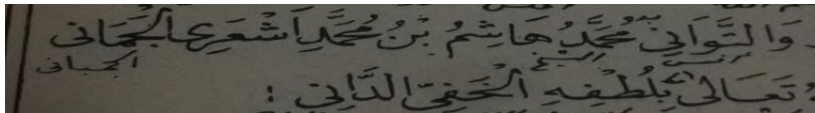 وَالتَّوَانِي مُحَمَّدُ هَاشِمُ بْنُ مُحَمَّدِ اَشْعَرِى الْجُمَانِى
الجمبانى
تَعَالَى بِلُطْفِهِ الْخَفِيِّ الدَّانِى :